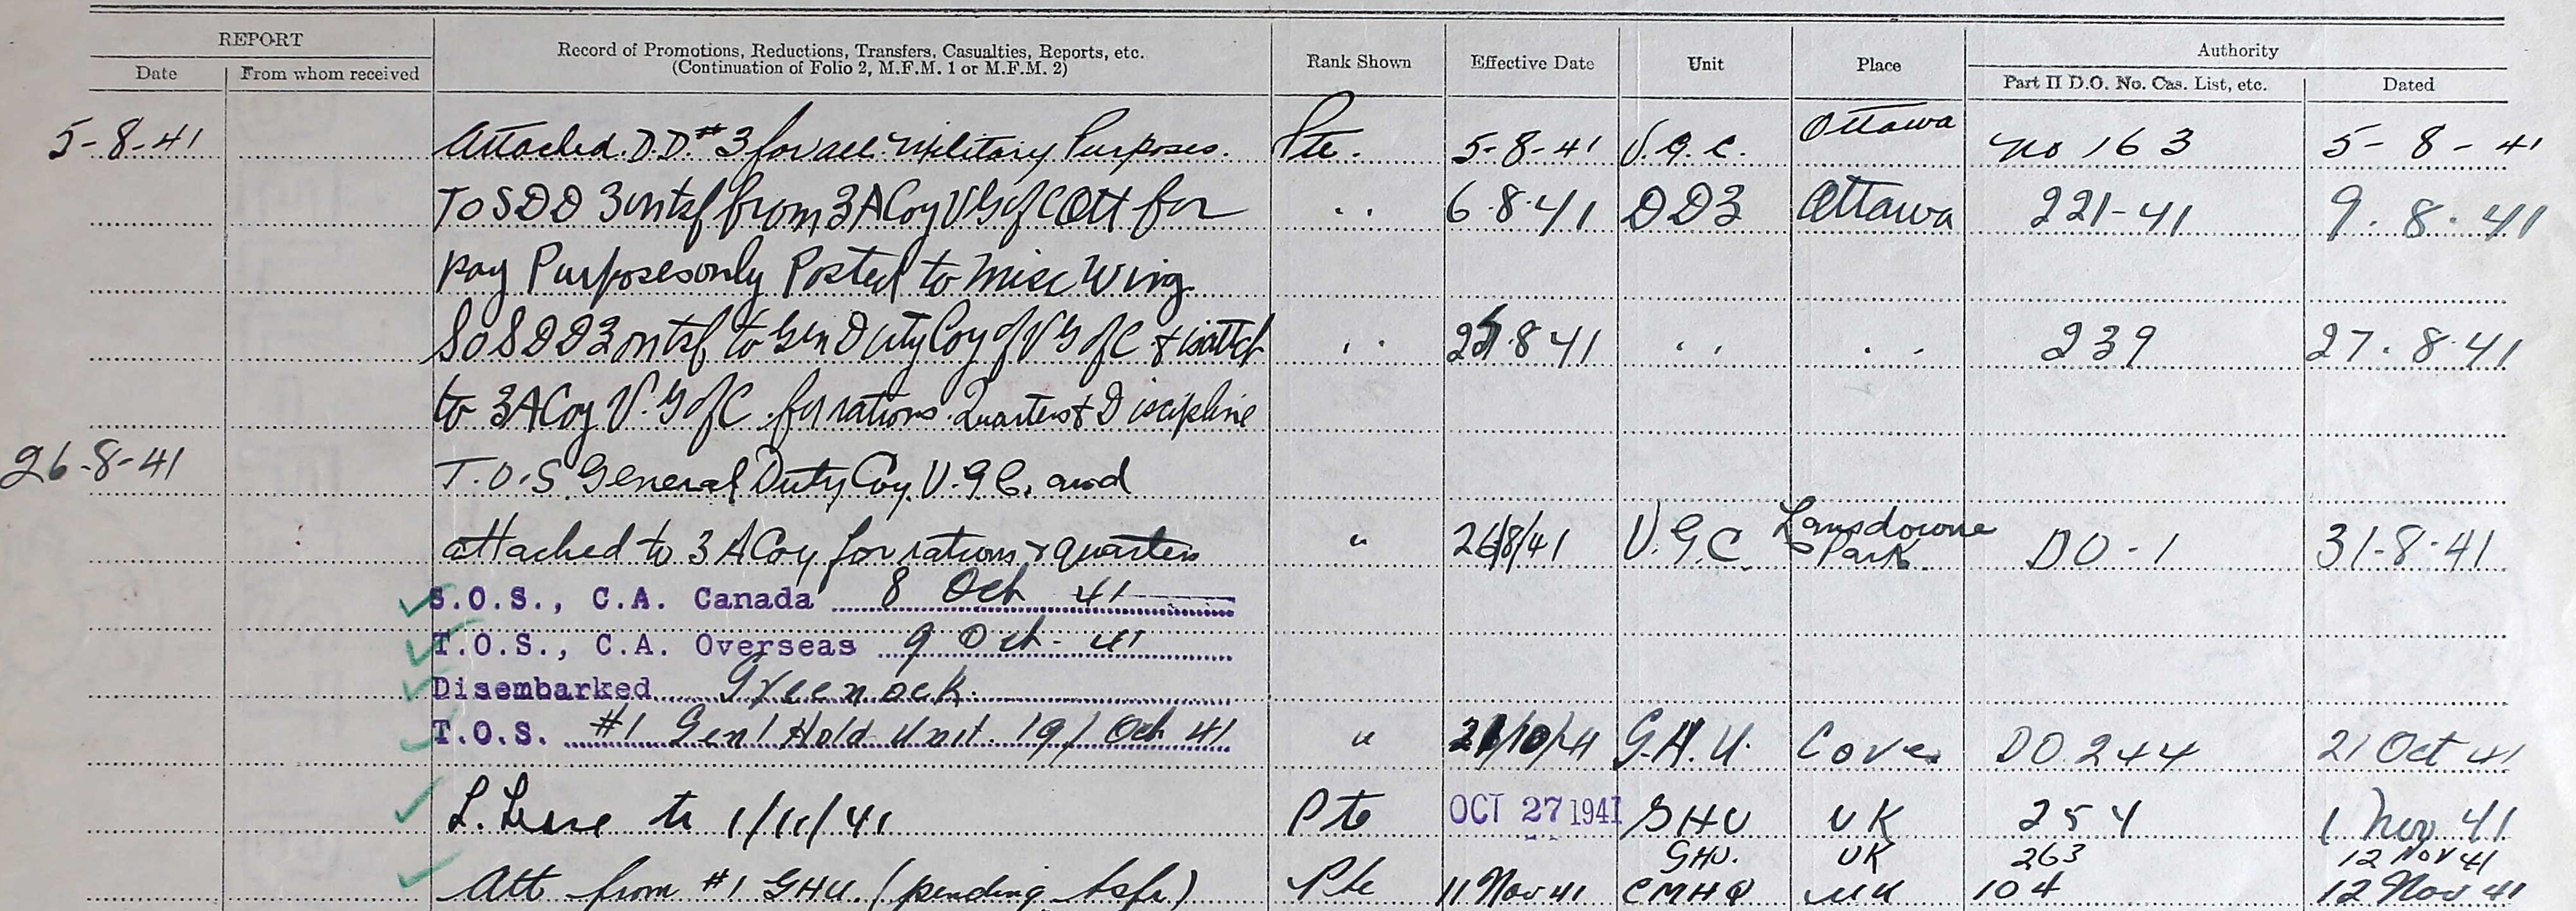 REPORT
Record of Promotions, Reductions, Transfers, Casualties, Reports, etc.
(Continuation of Folio 2, M.F.M. 1 or M.F.M. 2)
Rank Shown Effective Date Unit Place Authority
Date From whom received Part II D.O. No. Cas. List, etc. Dated
5-8-41 Attached D.D. #3 for all Military Purposes. Pte. 5-8-41 V.G.C. Ottawa No 163 5-8-41
TOSDD 3 on tsf from 3A Coy VG of C Ott for " 6.8.41 DD3 Ottawa 221-41 9.8.41
pay Purposes only Posted to Misc Wing
SOSDD3 on tsf to Gen Duty Coy of VG of C & is attch " 8 41 " " 239 27.8.41
to 3A Coy V.G of C for rations Quarters & Discipline
26-8-41 T.O.S. General Duty Coy. V.G.C. and
attached to 3 A Coy for rations & quarters " 26/8/41 V.G.C. Lansdowne Park DO-1 31-8-41
S.O.S., C.A. Canada 8 Oct 41
T.O.S., C.A. Overseas 9 Oct-41
Disembarked Greenock.
T.O.S. #1 Genl Hold Unit. 19/Oct 41 " /10/41 G.H.U. Cove DO 244 21 Oct 41
L. Leave to 1/11/41 Pte OCT 27 1941 GHU UK 254 1 Nov 41
GHU. UK 263 12 Nov 41
Att from #1 GHU (pending tsfr) Pte 11 Nov 41 CMHQ UK 104 12 Nov 41